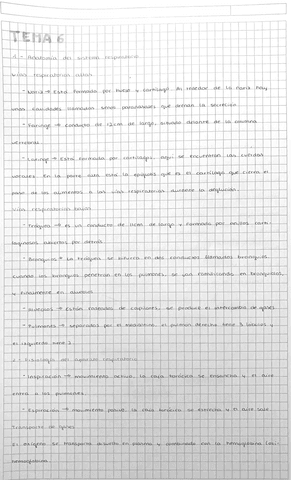 TEMA 6
1.- Anatomía del sistema respiratorio
Vías respiratorias altas
* Nariz → Está formada por hueso y cartílago. Al rededor de la nariz hay
unas cavidades llamadas senos paranasales que drenan la secreción
* Faringe → conducto de 12cm de largo, situado delante de la columna
vertebral
* Laringe → Está formada por cartílagos, aquí se encuentran las cuerdas
vocales. En la parte alta está la epiglotis que es el cartílago que cierra el
paso de los alimentos a las vías respiratorias durante la deglución.
Vías respiratorias bajas
* Tráquea → es un conducto de de largo y formada por anillos carti-
laginosos abiertos por detrás
* Bronquios → La tráquea se bifurca en dos conductos llamados bronquios,
cuando los bronquios penetran en los pulmones, se van ramificando en bronquiolos
y finalmente en alveolos
* Alveolos → Están rodeados de capilares, se produce el intercambio de gases
* Pulmones → separados por el mediastino, el pulmón derecho tiene 3 lóbulos y
el izquierdo tiene 2
2.- Fisiología del aparato respiratorio
* Inspiración → movimiento activo, la caja torácica se ensancha y el aire
entra a los pulmones.
* Espiración → movimiento pasivo, la caja torácica se estrecha y el aire sale
Transporte de gases
El oxígeno se transporta disuelto en plasma y combinado con la hemoglobina (oxi-
hemoglobina